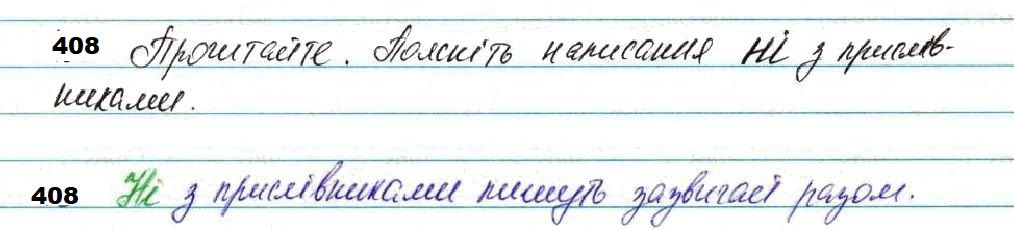 408 Прочитайте. Поясніть написання ні з прислів-
никами.
408 Ні з прислівниками пишуть зазвичай разом.